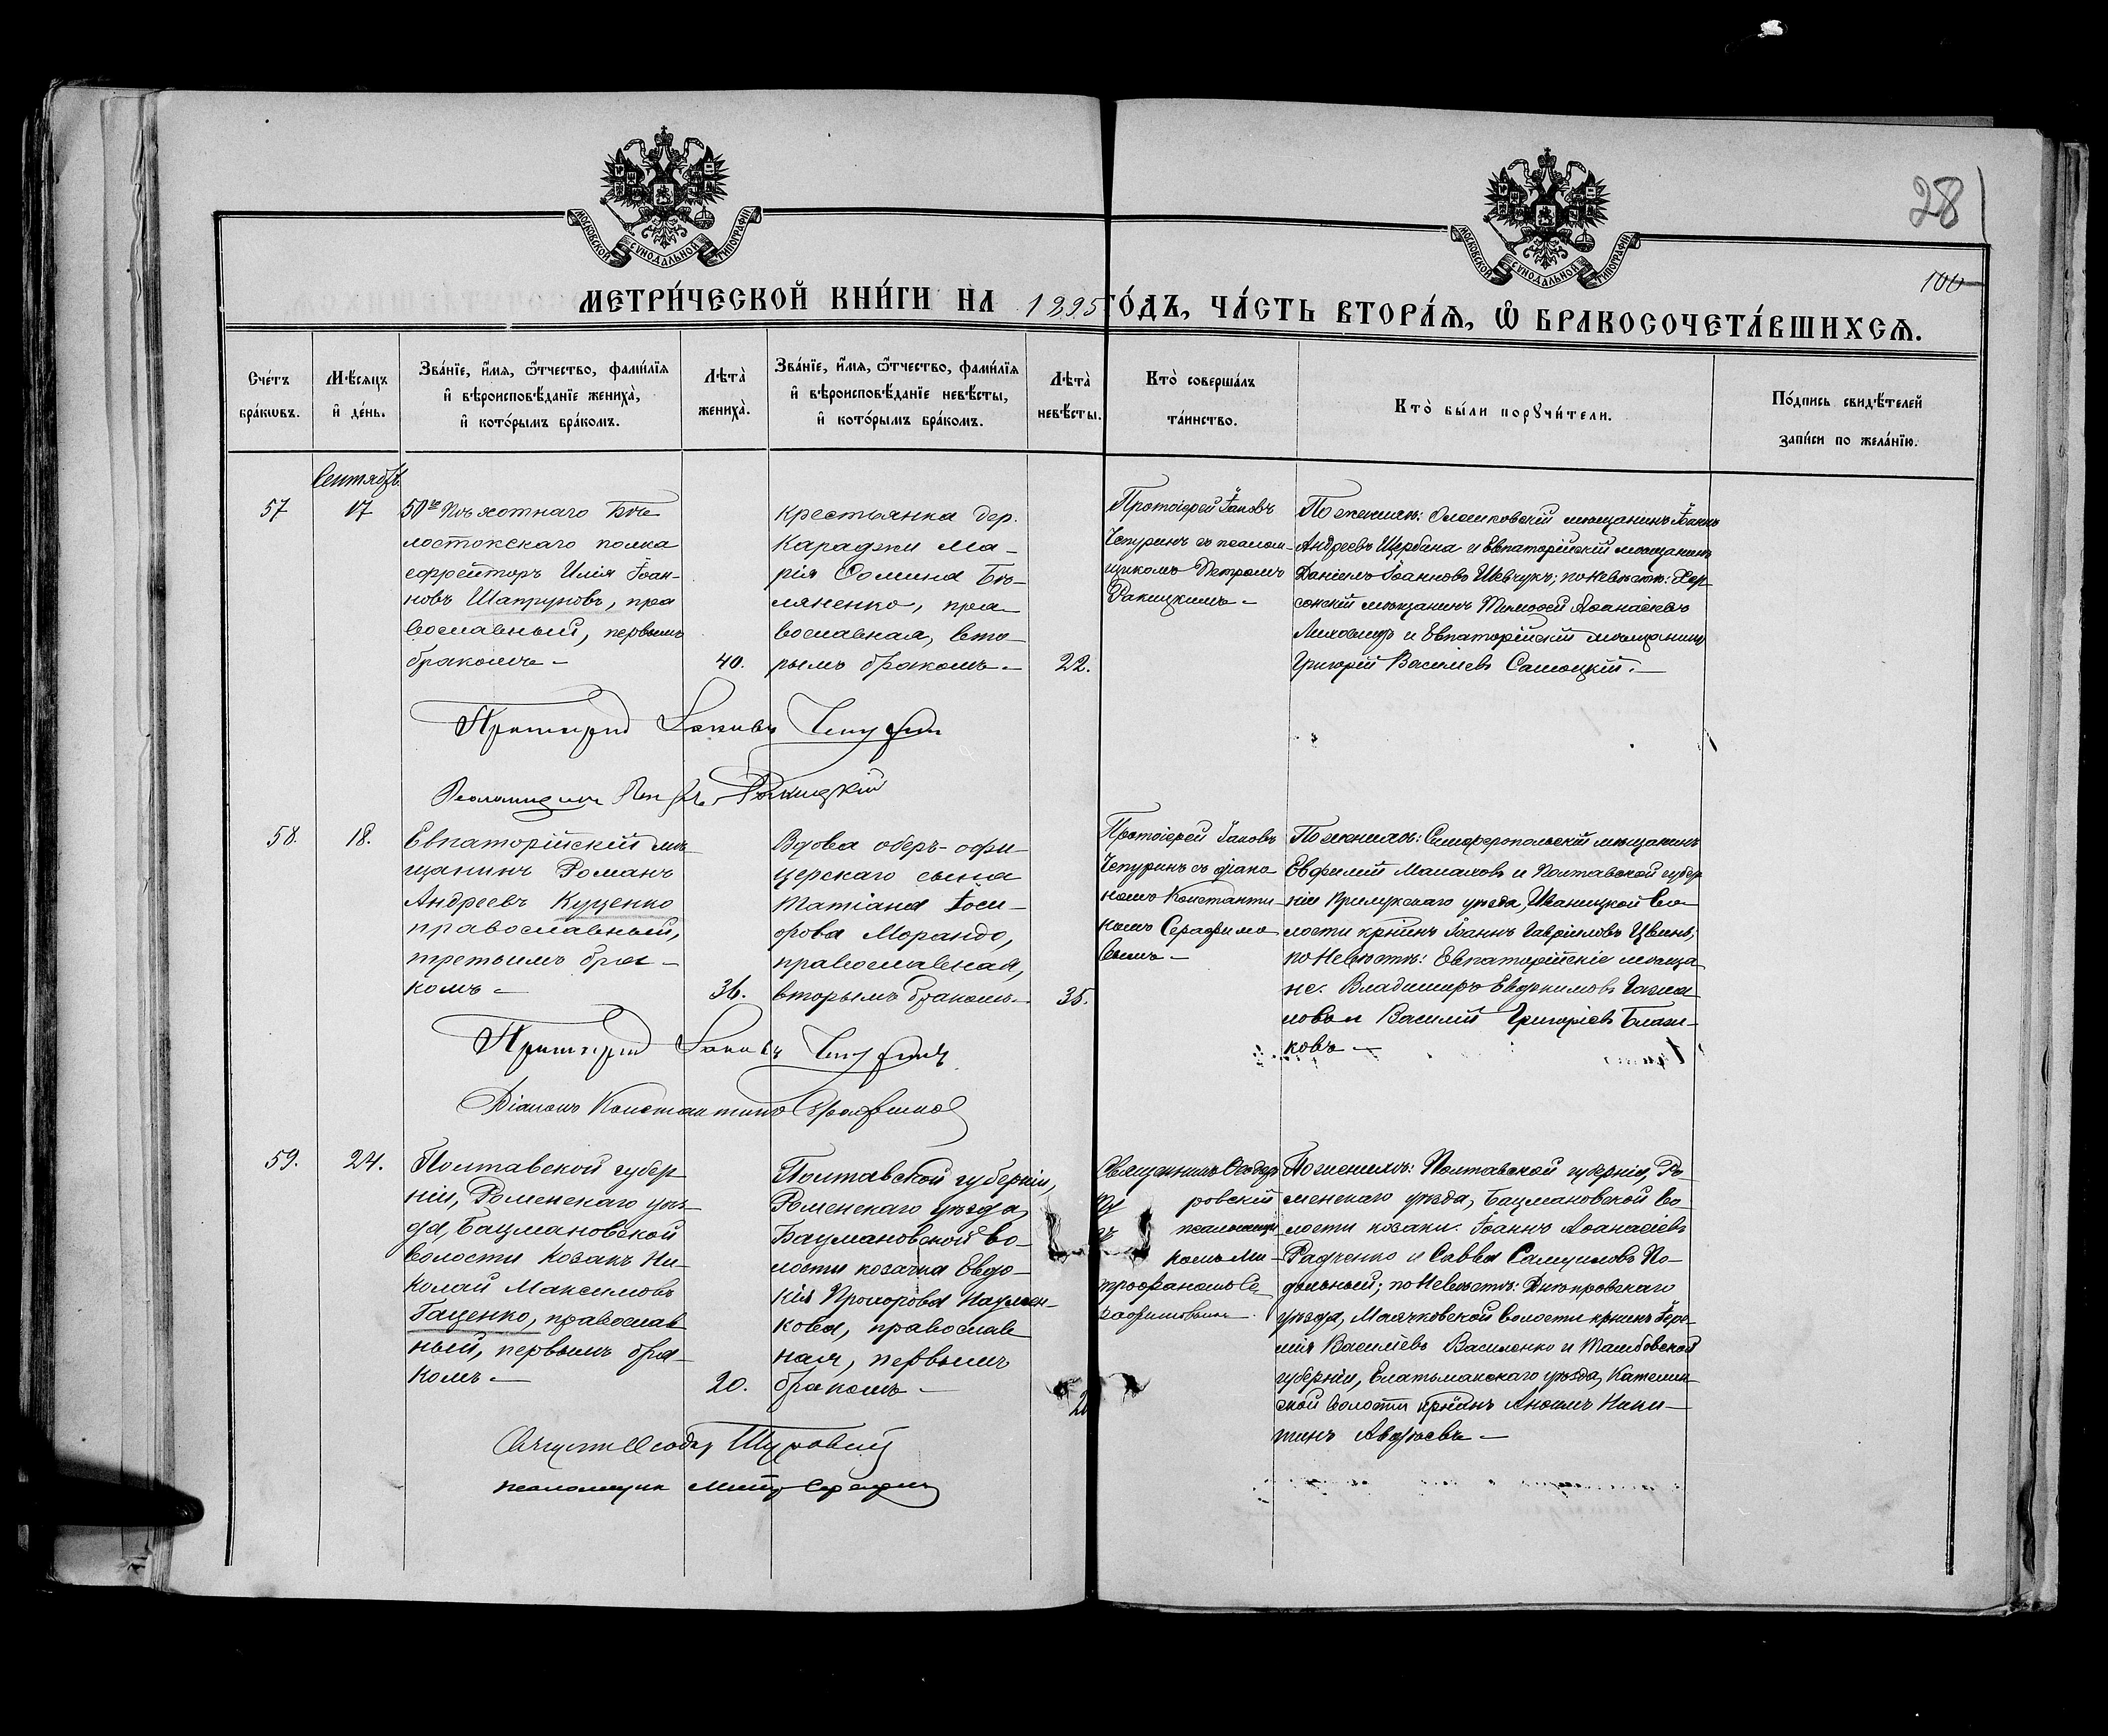 МОСКОВСКОЙ СѴНОДАЛЬНОЙ ТИПОГРАФІИ
МОСКОВСКОЙ СѴНОДАЛЬНОЙ ТИПОГРАФІИ
28
100
МЕТРИ́ЧЕСКОЙ КНИ́ГИ НА 1895 ГО́ДЪ, ЧА́СТЬ ВТОРА́Ѧ, Ѡ БРАКОСОЧЕТА́ВШИХСѦ.
Сче́тъ
бра́кѡвъ.
Мѣ́сѧцъ
и҆ де́нь.
Зва́нїе, и҆́мѧ, ѻ҆́тчество, фами́лїѧ
и҆ вѣроисповѣ́данїе жениха̀,
и҆ кото́рымъ бра́комъ.
Лѣта̀
жениха̀.
Зва́нїе, и҆́мѧ, ѻ҆́тчество, фами́лїѧ
и҆ вѣроисповѣ́данїе невѣ́сты,
и҆ кото́рымъ бра́комъ.
Лѣта̀
невѣ́сты.
Кто̀ соверша́лъ
та́инство.
Кто̀ бы́ли порꙋчи́тели.
По́дпись свидѣ́телей
за́писи по жела́нїю.
Сентябрь
57
17
50го Пѣхотнаго Бѣ-
лостокскаго полка
ефрейторъ Илія Іоан-
новъ Шапруновъ, пра
вославный, первымъ
бракомъ —
40.
Крестьянка дер.
Караджи Ма-
рія Ѳомина Бѣ-
ляненко, пра-
вославная, вто-
рымъ бракомъ. —
22.
Протоіерей Іаковъ
Чепуринъ съ псалом-
щикомъ Петромъ
Ракицкимъ —
По женихѣ: Олешковскій мѣщанинъ Іоаннъ
Андреевъ Щербина и Евпаторійскій мѣщанинъ
Даніилъ Іоанновъ Шевчукъ; по невѣстѣ: Хер-
сонскій мѣщанинъ Тимоѳей Аѳанасіевъ
и Евпаторійскій мѣщанинъ
Григорій Васильевъ Самоцкій. —
Протоіерей Іаковъ Чепуринъ
Псаломщикъ Петръ Ракицкій
58.
18.
Евпаторійскій мѣ-
щанинъ Романъ
Андреевъ Куценко
православный,
третьимъ бра-
комъ —
36.
Вдова оберъ-офи-
церскаго сына
Татіана Іоси-
фова Морандо,
православная,
вторымъ бракомъ. —
35.
Протоіерей Іаковъ
Чепуринъ съ діако-
номъ Константи-
номъ Серафимо
вымъ —
По женихѣ: Симферопольскій мѣщанинъ
Евфимій Малаховъ и Полтавской губер
ніи Прилукскаго уѣзда, Иваницкой во-
лости кр͠нинъ Іоаннъ Гавріиловъ Цвинь;
по невѣстѣ: Евпаторійскіе мѣща-
не: Владиміръ Евдокимовъ
и Василій Григоріевъ
ковъ —
Протоіерей Іаковъ Чепуринъ
Діаконъ Константинъ Серафимовъ
59.
24.
Полтавской губер
ніи, Роменскаго уѣз-
да, Бацмановской
волости козакъ Ни-
колай Максимовъ
Гаценко, православ
ный, первымъ бра-
комъ —
20.
Полтавской губерніи,
Роменскаго уѣзда,
Бацмановской во-
лости козачка Евдо-
кія Прохорова Наумен-
кова, православ
ная, первымъ
бракомъ —
20
Священникъ Ѳеодоръ
ровскій
псаломщи
комъ Ми-
трофаномъ Се
рафимовымъ
По женихѣ: Полтавской губерніи, Ро-
менскаго уѣзда, Бацмановской во-
лости козаки: Іоаннъ Аѳанасіевъ
Радченко и Савва Самуиловъ По-
дольный; по невѣстѣ: Днѣпровскаго
уѣзда, Маячковской волости кр͠нинъ Іере-
мія Васильевъ Василенко и Тамбовской
губерніи, Елатьманскаго уѣзда,
ской волости кр͠нинъ Ники-
тинъ Авдѣевъ —
Священникъ Ѳеодоръ
псаломщикъ Митр. Серафимовъ